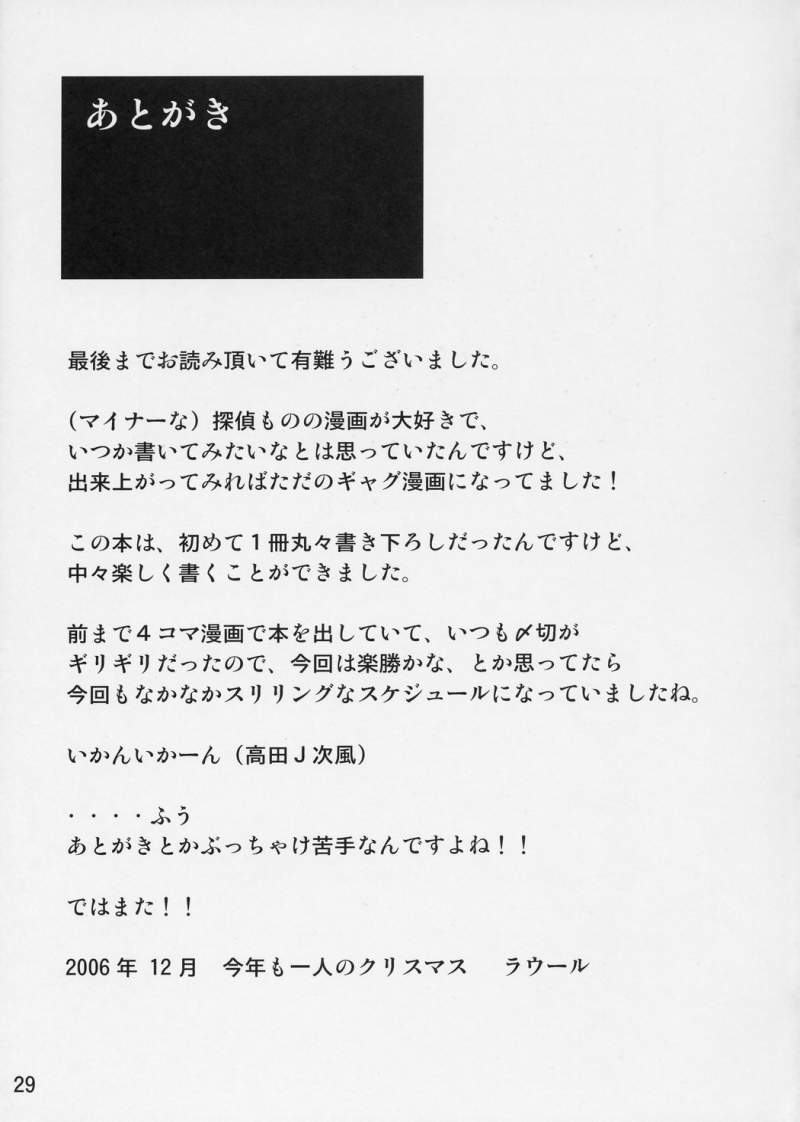 あとがき
最後までお読み頂いて有難うございました。
（マイナーな）探偵ものの漫画が大好きで、
いつか書いてみたいなとは思っていたんですけど、
出来上がってみればただのギャグ漫画になってました！
この本は、初めて１冊丸々書き下ろしだったんですけど、
中々楽しく書くことができました。
前まで４コマ漫画で本を出していて、いつも〆切が
ギリギリだったので、今回は楽勝かな、とか思ってたら
今回もなかなかスリリングなスケジュールになっていましたね。
いかんいかーん（高田Ｊ次風）
・・・・ふう
あとがきとかぶっちゃけ苦手なんですよね！！
ではまた！！
2006 年 12 月　今年も一人のクリスマス　ラウール
29